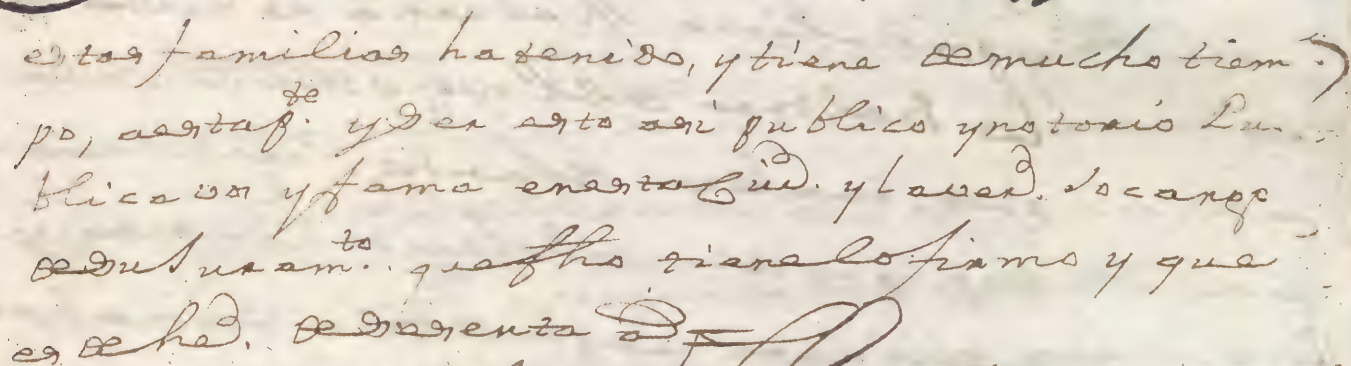 estas familias ha tenido, y tiene de mucho tiem-
po, a esta p.te y ser esto asi publico y notorio Pu-
blica vos y fama en esta Ciud. y la verd. so cargo
de su Juram.to que fho tiene lo firmo y que
es de hed. de sesenta a.s